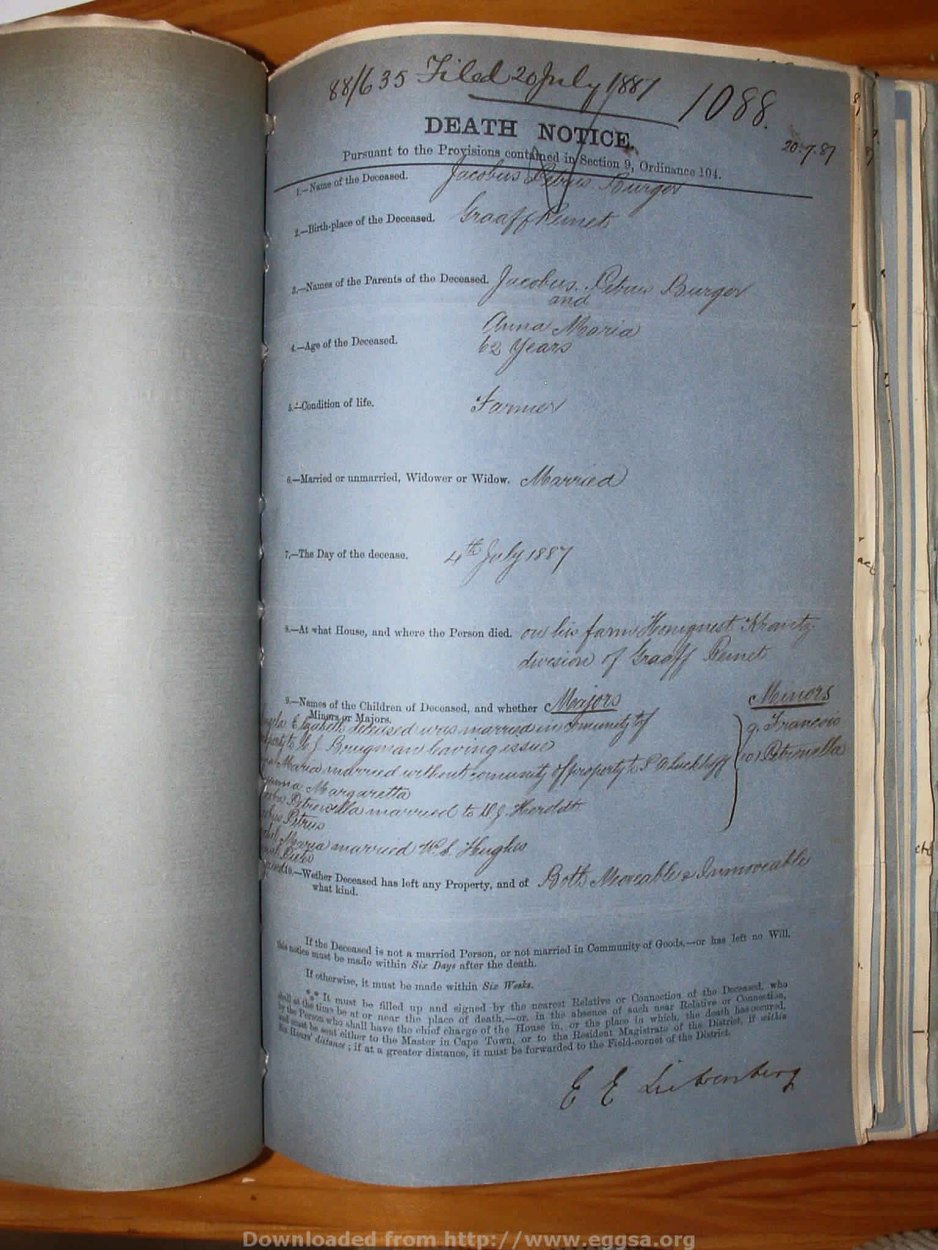 88/635 Filed 20 July 1887 1088.
20.7.87
DEATH NOTICE,
Pursuant to the Provisions contained in Section 9, Ordinance 104.
1.—Name of the Deceased. Jacobus Petrus Burger
2.—Birth-place of the Deceased. Graaff Reinet
3.—Names of the Parents of the Deceased. Jacobus Petrus Burger
and
Anna Maria
4.—Age of the Deceased. 62 Years
5.—Condition of life. Farmer
6.—Married or unmarried, Widower or Widow. Married
7.—The Day of the decease. 4th July 1887
8.—At what House, and where the Person died. on his farm Krantz
division of Graaff Reinet
9.—Names of the Children of Deceased, and whether Majors Minors
Minors or Majors.
was married in 9. Francois
to W. J. Brugman leaving issue 10 Petronella
Maria married without community of property to
Margaretta
Petronella married to W. J. Heroldt
Petrus
Maria married W. S. Hughes
10.—Wether Deceased has left any Property, and of Both Moveable & Immoveable
what kind.
If the Deceased is not a married Person, or not married in Community of Goods,—or has left no Will,
this notice must be made within Six Days after the death.
If otherwise, it must be made within Six Weeks.
It must be filled up and signed by the nearest Relative or Connection of the Deceased, who
shall at the time be at or near the place of death,—or, in the absence of such near Relative or Connection,
by the Person who shall have the chief charge of the House in, or the place in which, the death has occured,
and must be sent either to the Master in Cape Town, or to the Resident Magistrate of the District, if within
Six Hours' distance; if at a greater distance, it must be forwarded to the Field-cornet of the District.
E E Liebenberg
Downloaded from http://www.eggsa.org